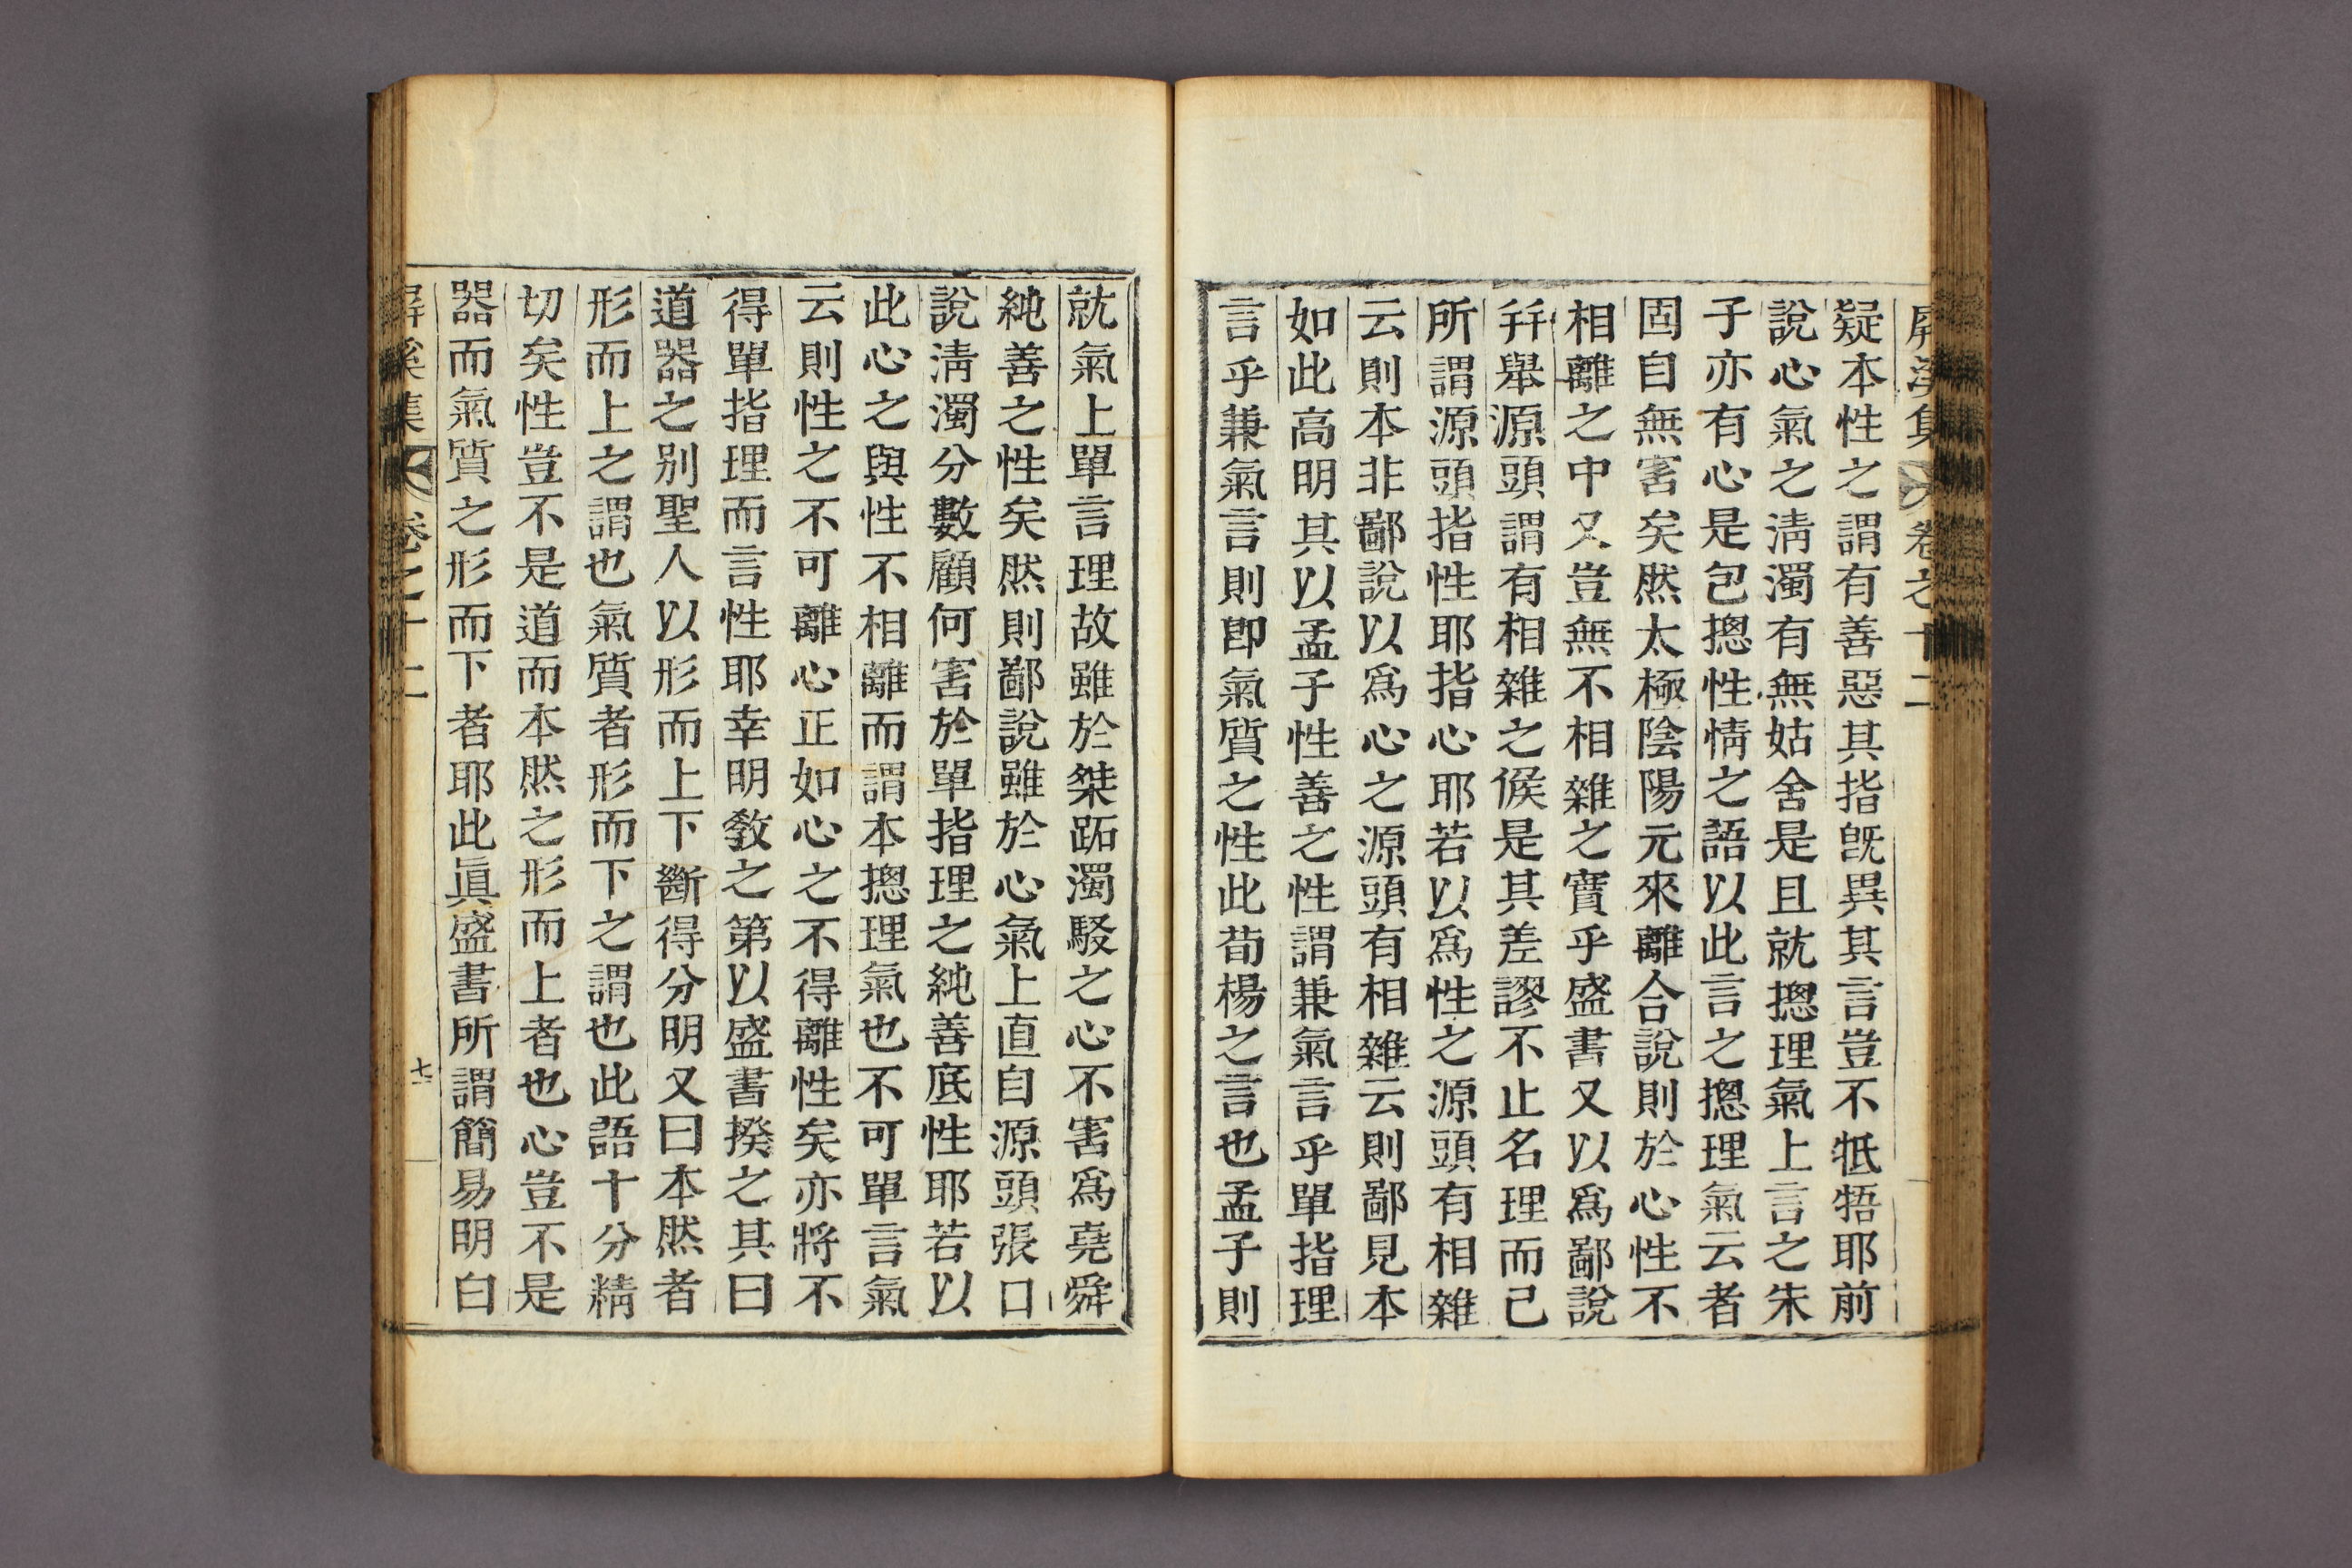 屛溪集 卷之十二
疑本性之謂有善惡其指旣異其言豈不牴牾耶前
說心氣之淸濁有無姑舍是且就摠理氣上言之朱
子亦有心是包摠性情之語以此言之摠理氣云者
固自無害矣然太極陰陽元來離合說則於心性不
相離之中又豈無不相雜之實乎盛書又以爲鄙說
幷擧源頭謂有相雜之候是其差謬不止名理而已
所謂源頭指性耶指心耶若以爲性之源頭有相雜
云則本非鄙說以爲心之源頭有相雜云則鄙見本
如此高明其以孟子性善之性謂兼氣言乎單指理
言乎兼氣言則卽氣質之性此荀楊之言也孟子則
就氣上單言理故雖於桀跖濁駁之心不害爲堯舜
純善之性矣然則鄙說雖於心氣上直自源頭張口
說淸濁分數顧何害於單指理之純善底性耶若以
此心之與性不相離而謂本摠理氣也不可單言氣
云則性之不可離心正如心之不得離性矣亦將不
得單指理而言性耶幸明敎之第以盛書揆之其曰
道器之別聖人以形而上下斷得分明又曰本然者
形而上之謂也氣質者形而下之謂也此語十分精
切矣性豈不是道而本然之形而上者也心豈不是
器而氣質之形而下者耶此眞盛書所謂簡易明白
屛溪集 卷之十二 七